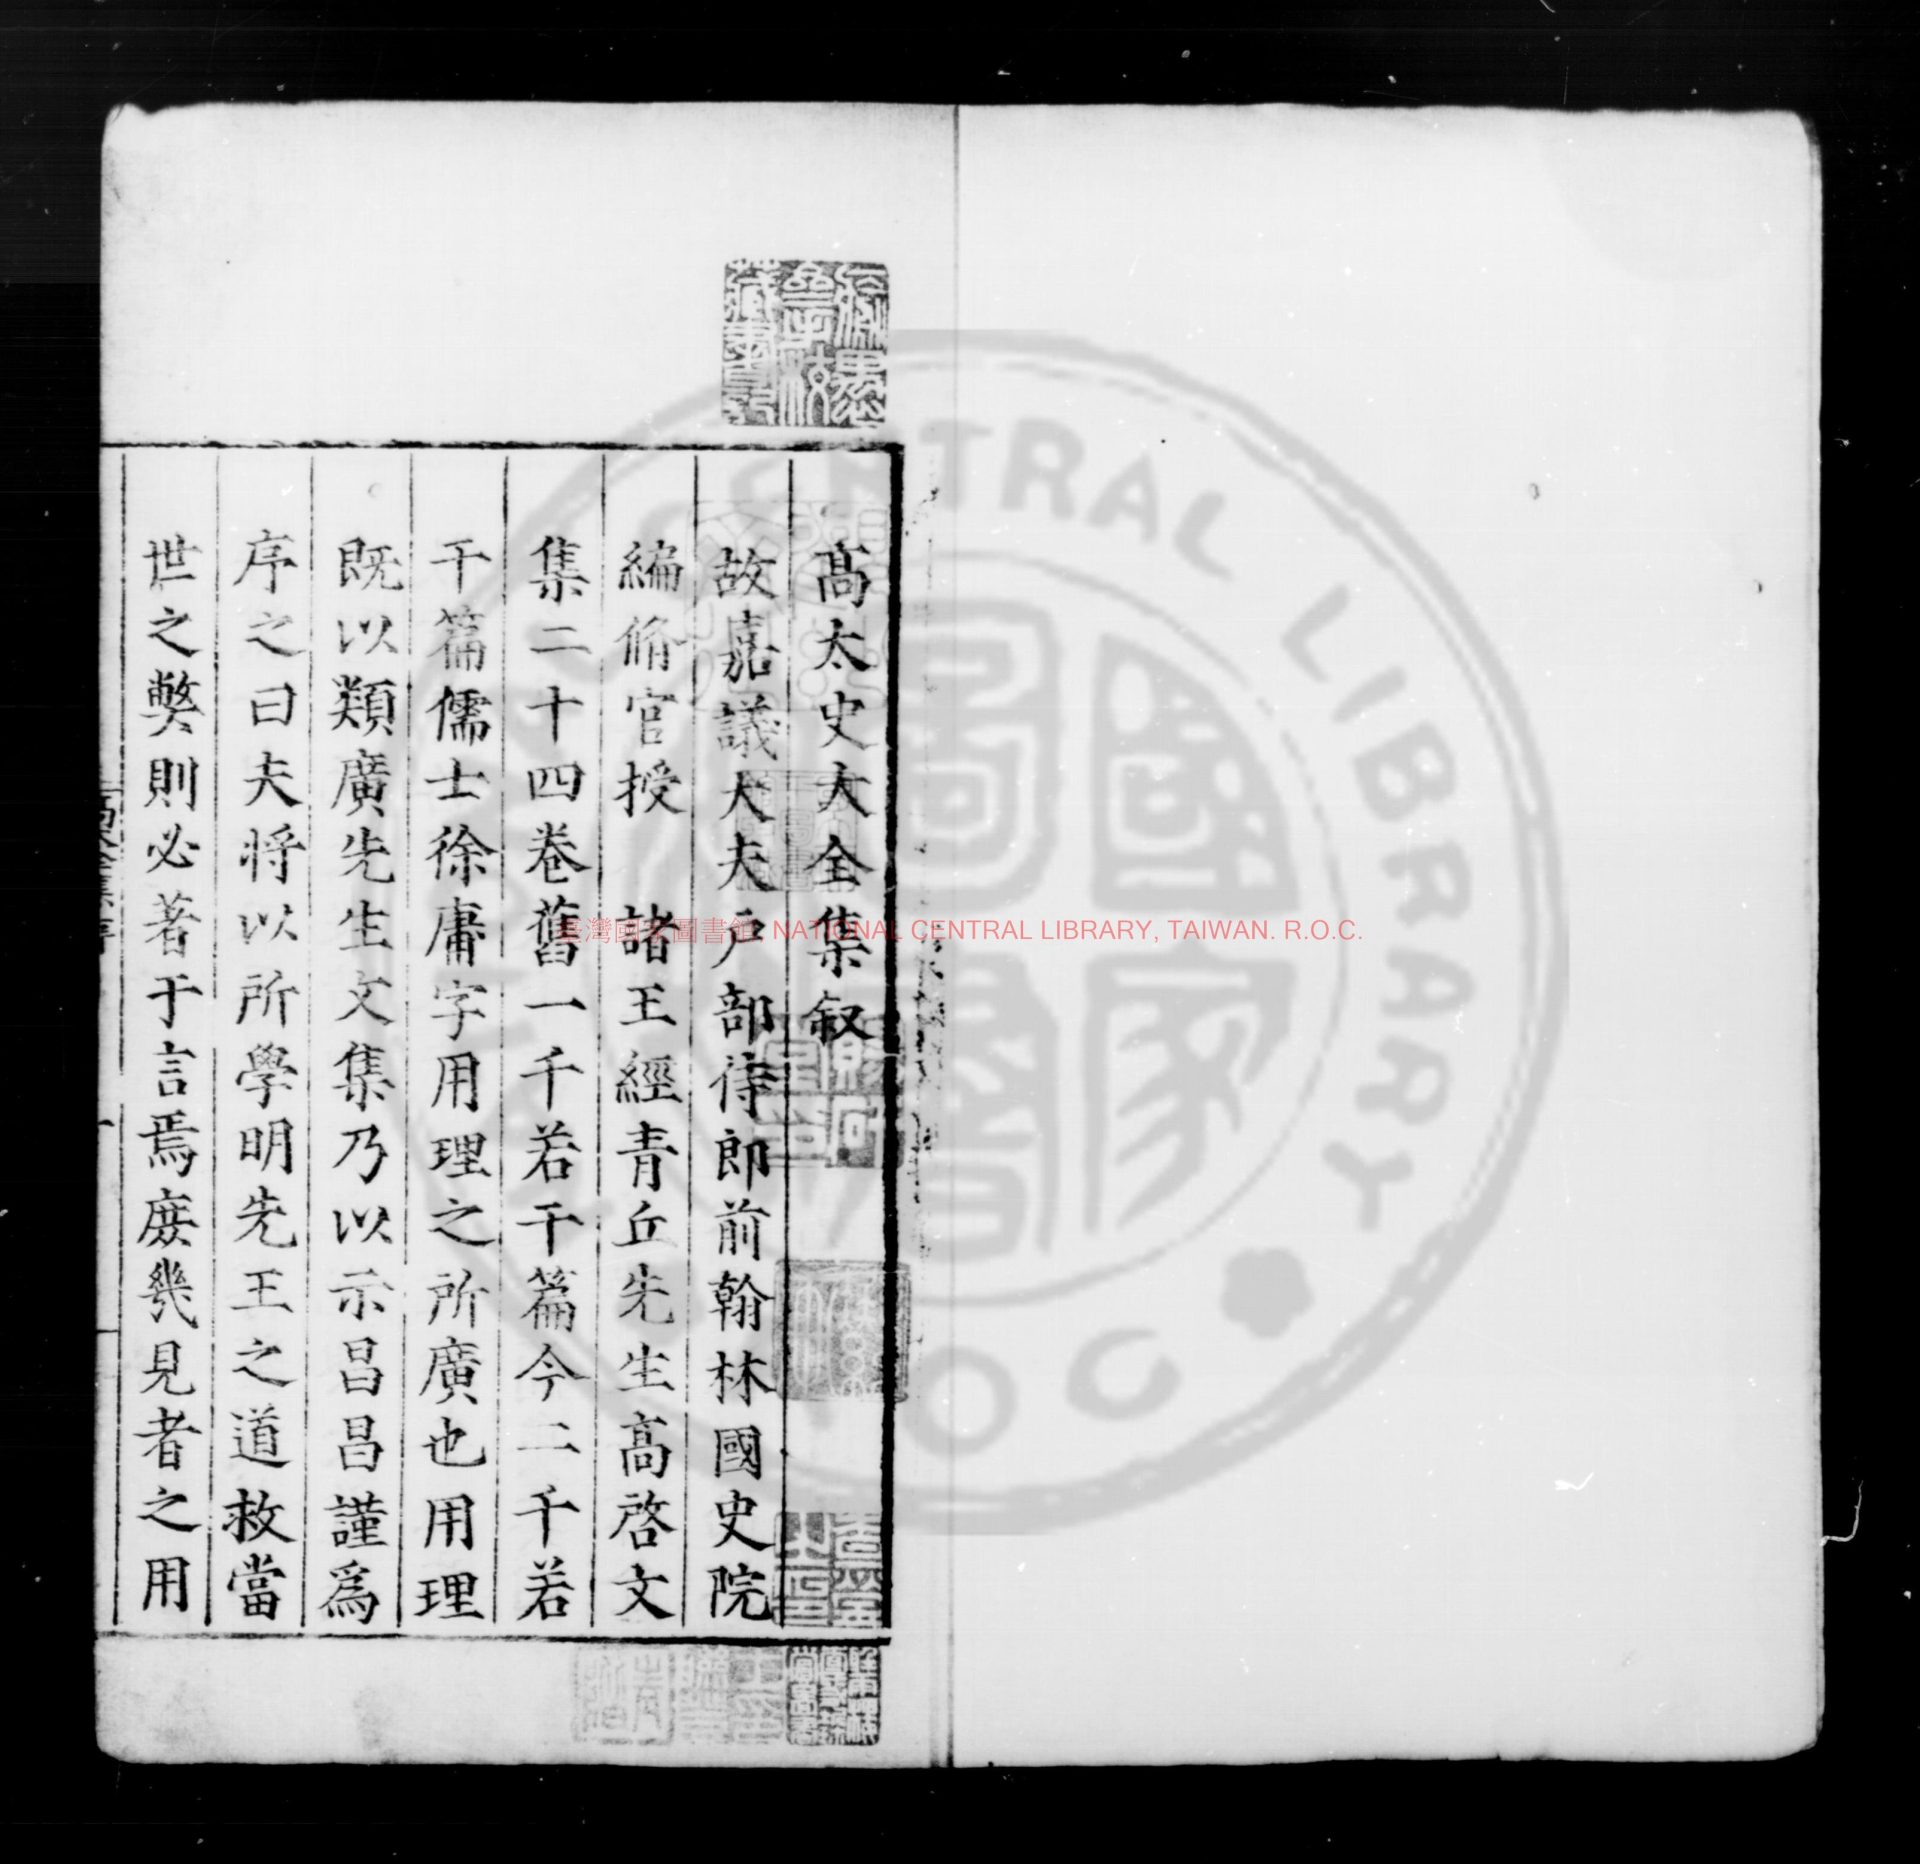 髙太史大全集叙
故嘉議大夫戶部侍郎前翰林國史院
編脩官授　諸王經青丘先生髙啓文
集二十四卷舊一千若干篇今二千若
干篇儒士徐庸字用理之所廣也用理
既以類廣先生文集乃以示昌昌謹爲
序之曰夫將以所學明先王之道救當
世之弊則必著于言焉庻幾見者之用
臺灣國家圖書館, NATIONAL CENTRAL LIBRARY, TAIWAN. R.O.C.
CENTRAL LIBRARY
國家圖書